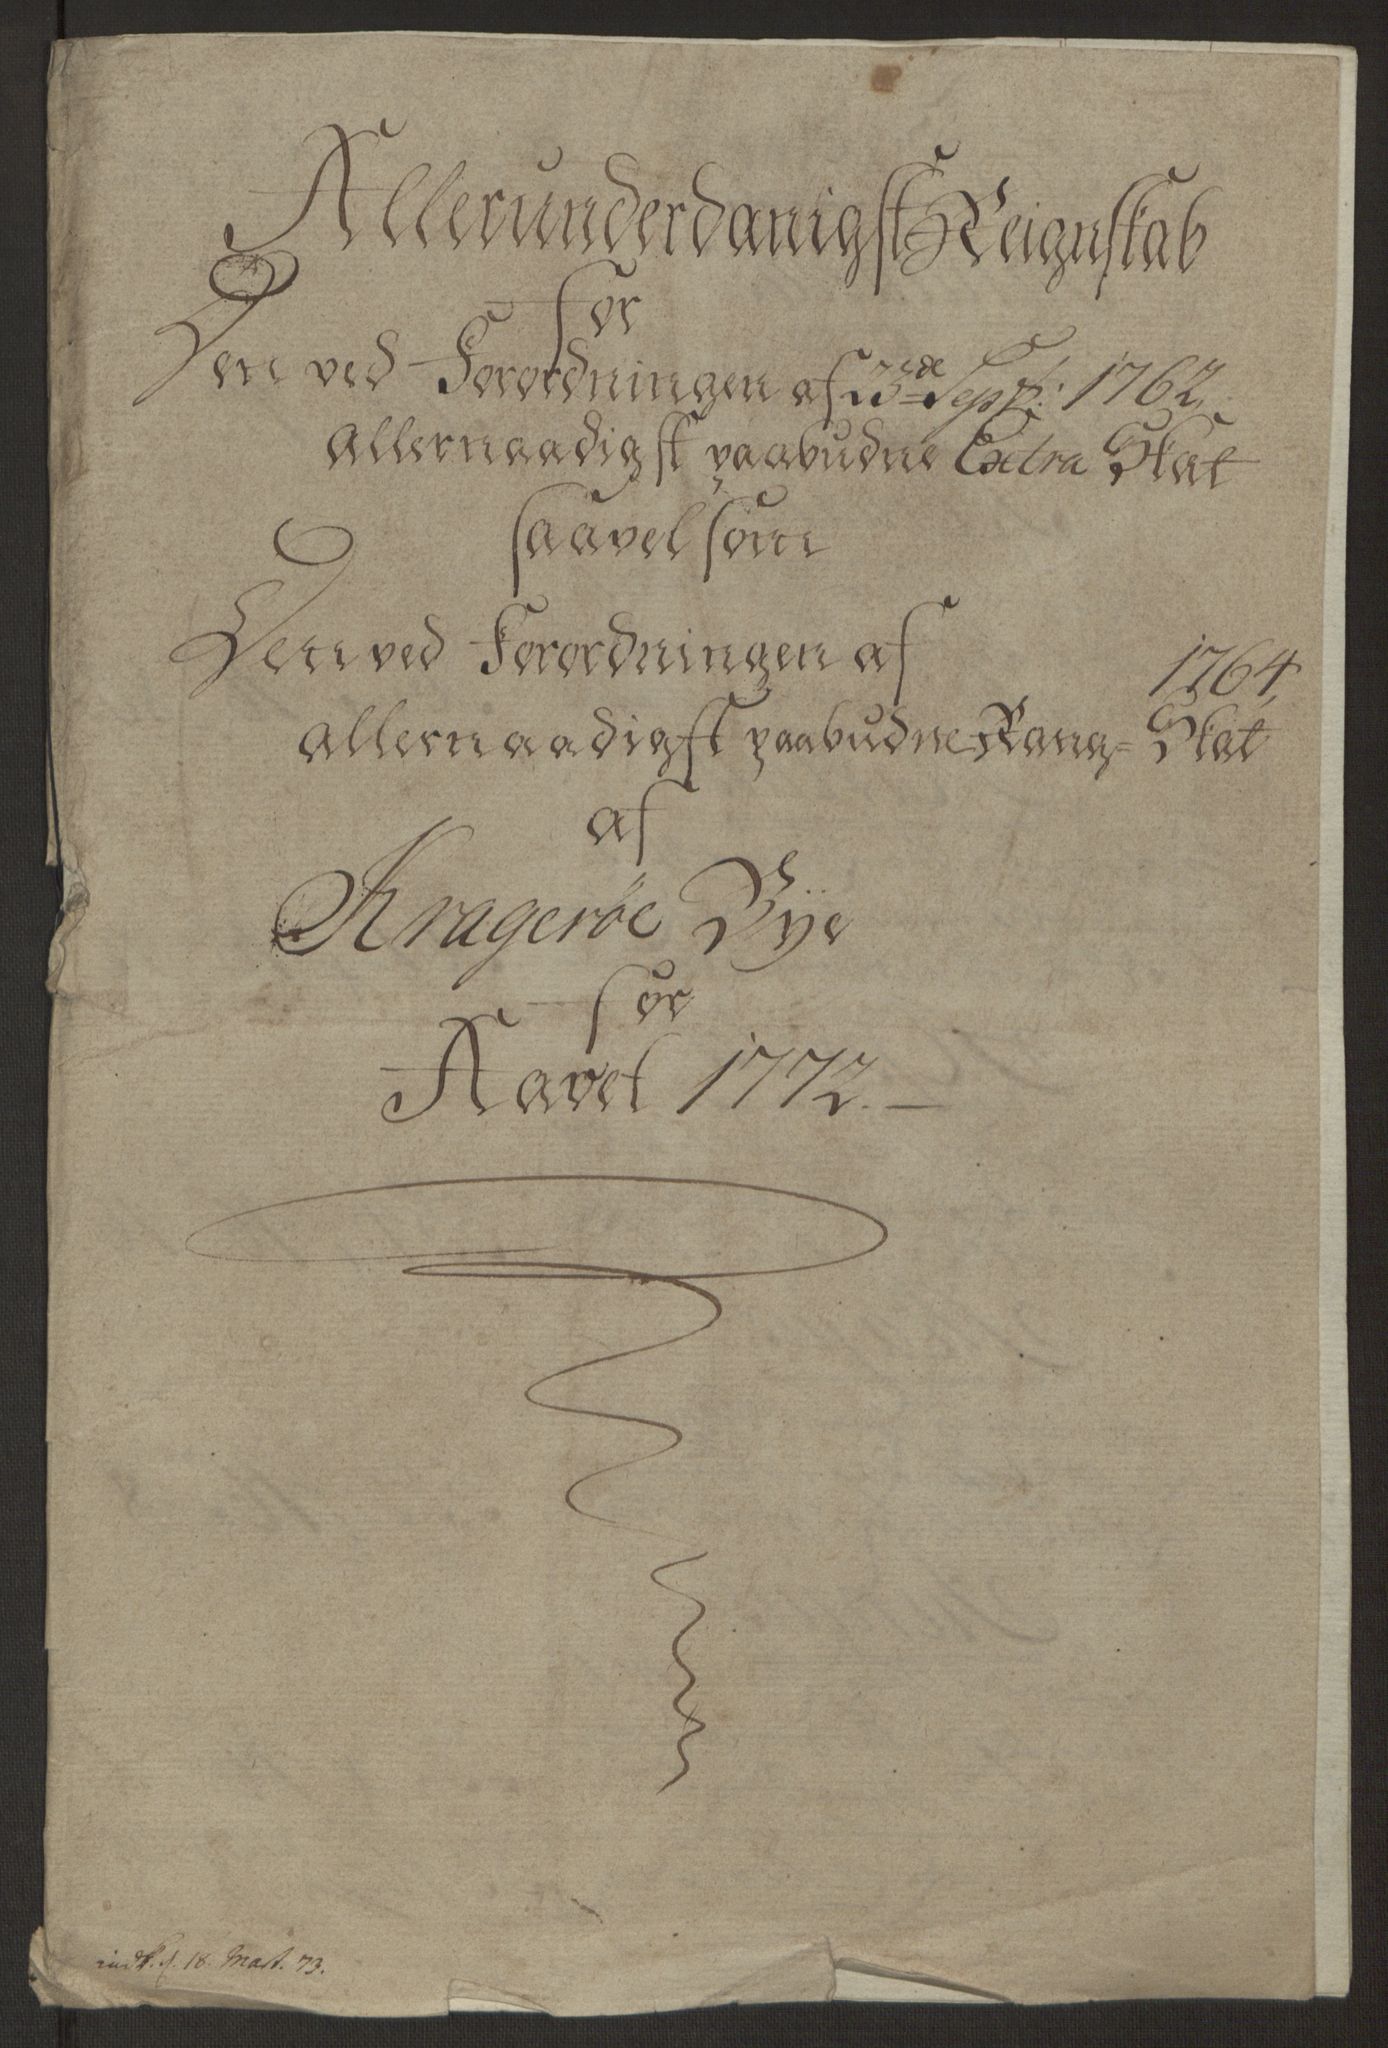 Allerunderdanigst Reignskab
for
Den ved Forordningen af 23de Sept: 1762,
allernaadigst paabudne Extra Skat
saavelsom
Den ved Forordningen af 1764,
allernaadigst paabudne Rang= Skat
af
Kragerøe Bÿe
for
Aaret 1772. —
indk. d. 18. Mart. 73.